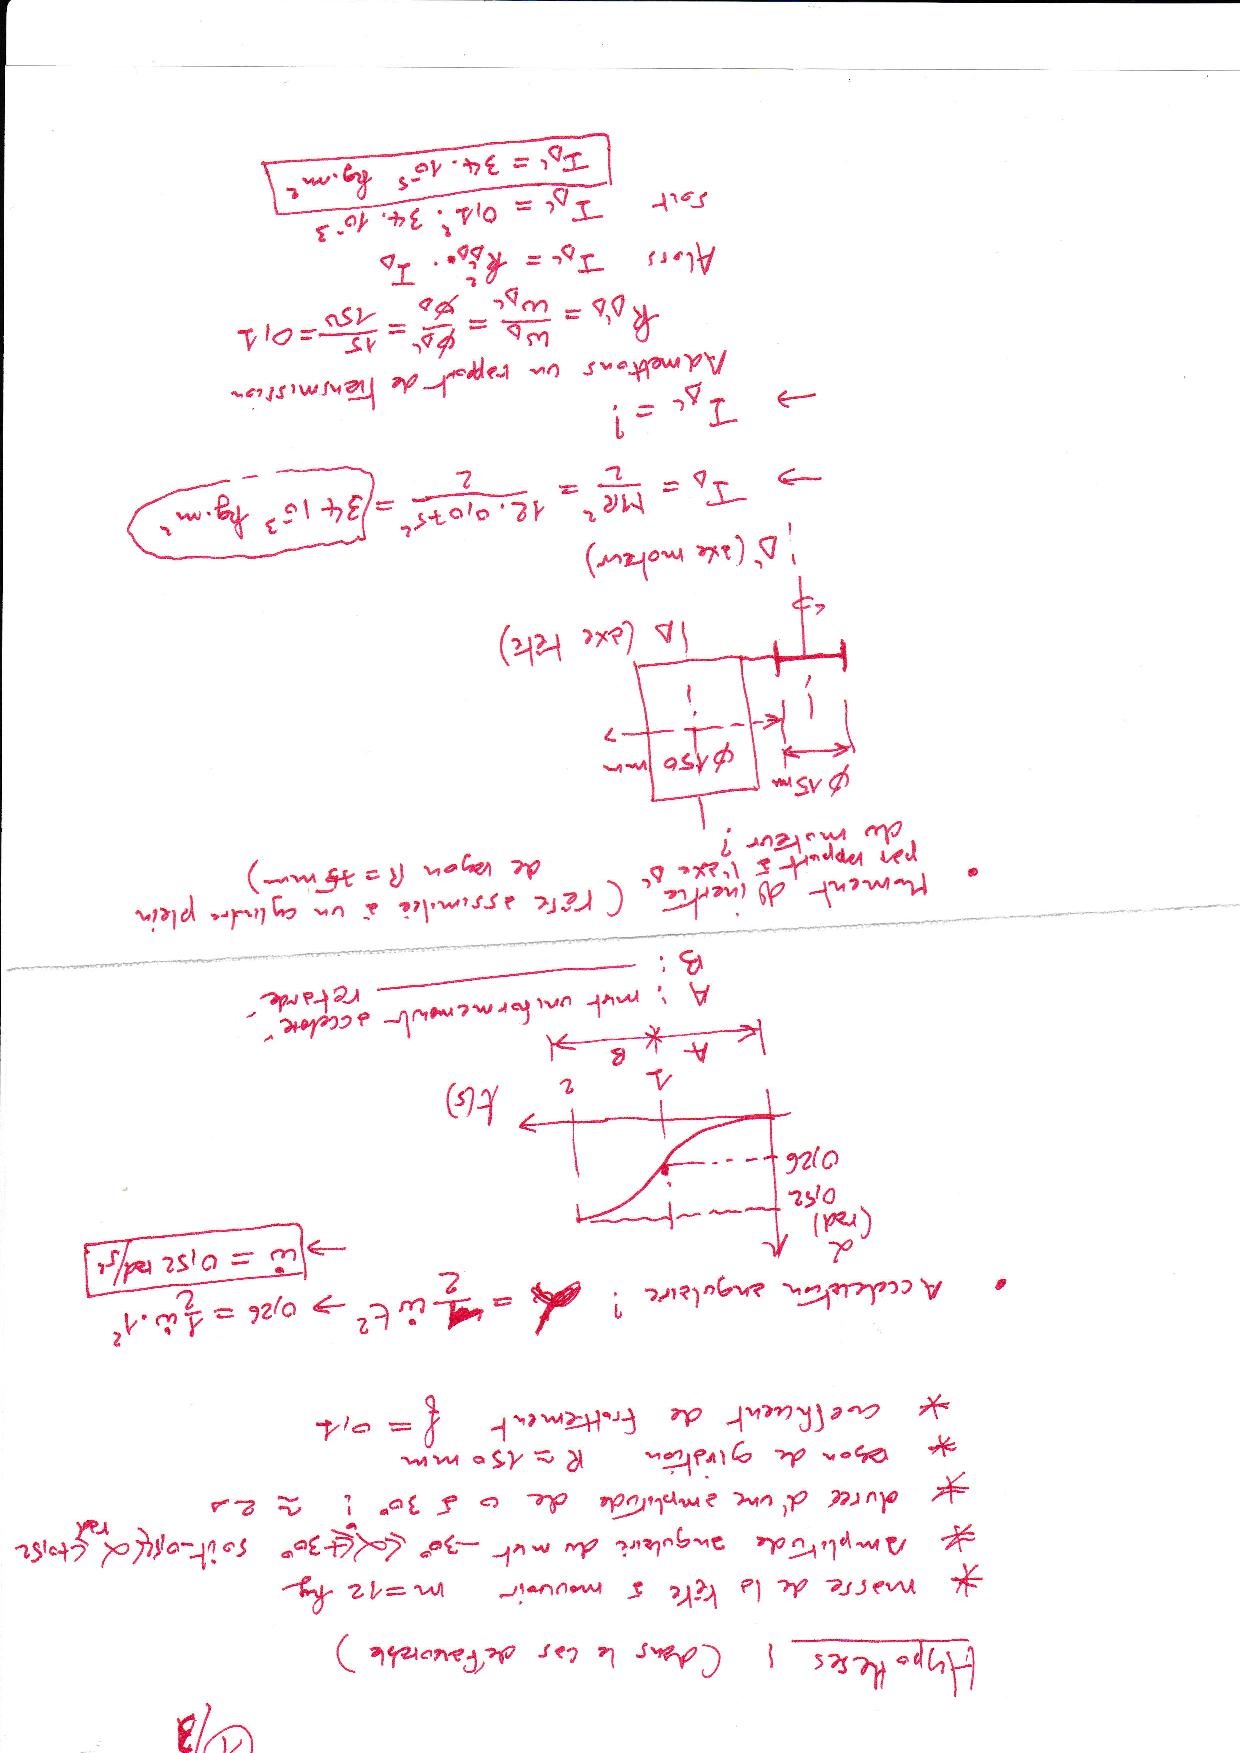 1/3
Hypothèses : (dans le cas défavorable)
* masse de la tête à mouvoir m = 12 kg
* amplitude angulaire du mvt -30° ≤ α ≤ +30° soit -0,52 ≤ α ≤ +0,52 rad
* durée d'une amplitude de 0 à 30° : ≈ 2 s
* rayon de giration R = 150 mm
* coefficient de frottement f = 0,1
• Accélération angulaire : = 1/2 ω̇ t² → 0,26 = 1/2 ω̇ . 1²
→ ω̇ = 0,52 rad/s²
α (rad)
0,52
0,26
1 2 t(s)
A B
A : mvt uniformément accéléré
B : ———— retardé
• Moment d'inertie (tête assimilée à un cylindre plein
par rapport à l'axe Δ' de rayon R = 75 mm)
du moteur :
ø 15 mm ø 150 mm
Δ (axe tête)
Δ' (axe moteur)
→ I_Δ = MR²/2 = 12 . 0,075²/2 = 34 10⁻³ kg.m²
→ I_Δ' = ?
Admettons un rapport de transmission
R_ΔΔ' = ω_Δ/ω_Δ' = ø_Δ'/ø_Δ = 15/150 = 0,1
Alors I_Δ' = R²_ΔΔ' . I_Δ
soit I_Δ' = 0,1² . 34 . 10⁻³
I_Δ' = 34 . 10⁻⁵ kg.m²